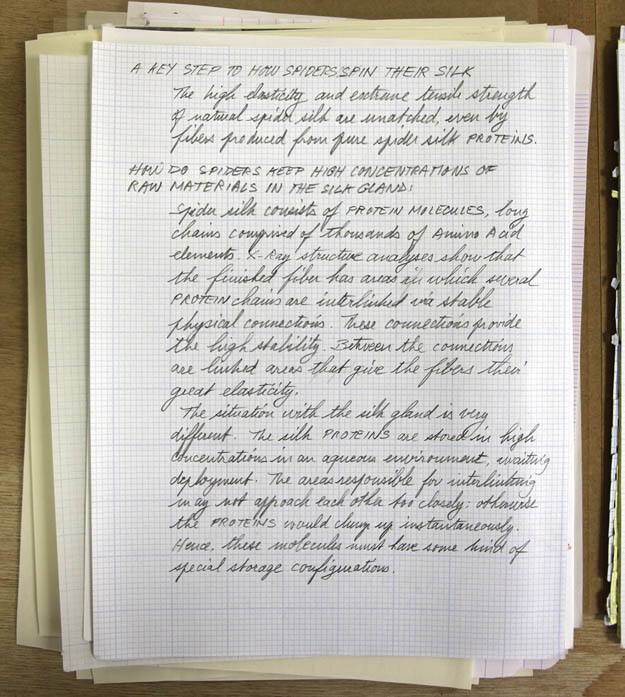 A KEY STEP TO HOW SPIDERS SPIN THEIR SILK
The high elasticity and extreme tensile strength
of natural spider silk are unmatched, even by
fibers produced from pure spider silk PROTEINS.
HOW DO SPIDERS KEEP HIGH CONCENTRATIONS OF
RAW MATERIALS IN THE SILK GLAND:
Spider silk consists of PROTEIN MOLECULES, long
chains comprised of thousands of Amino Acid
elements. X-Ray structure analyses show that
the finished fiber has areas in which several
PROTEIN chains are interlinked via stable
physical connections. These connections provide
the high stability. Between the connections
are linked areas that give the fibers their
great elasticity.
The situation with the silk gland is very
different. The silk PROTEINS are stored in high
concentrations in an aqueous environment, awaiting
deployment. The areas responsible for interlinking
may not approach each other too closely; otherwise
the PROTEINS would clump up instantaneously.
Hence, these molecules must have some kind of
special storage configuration.